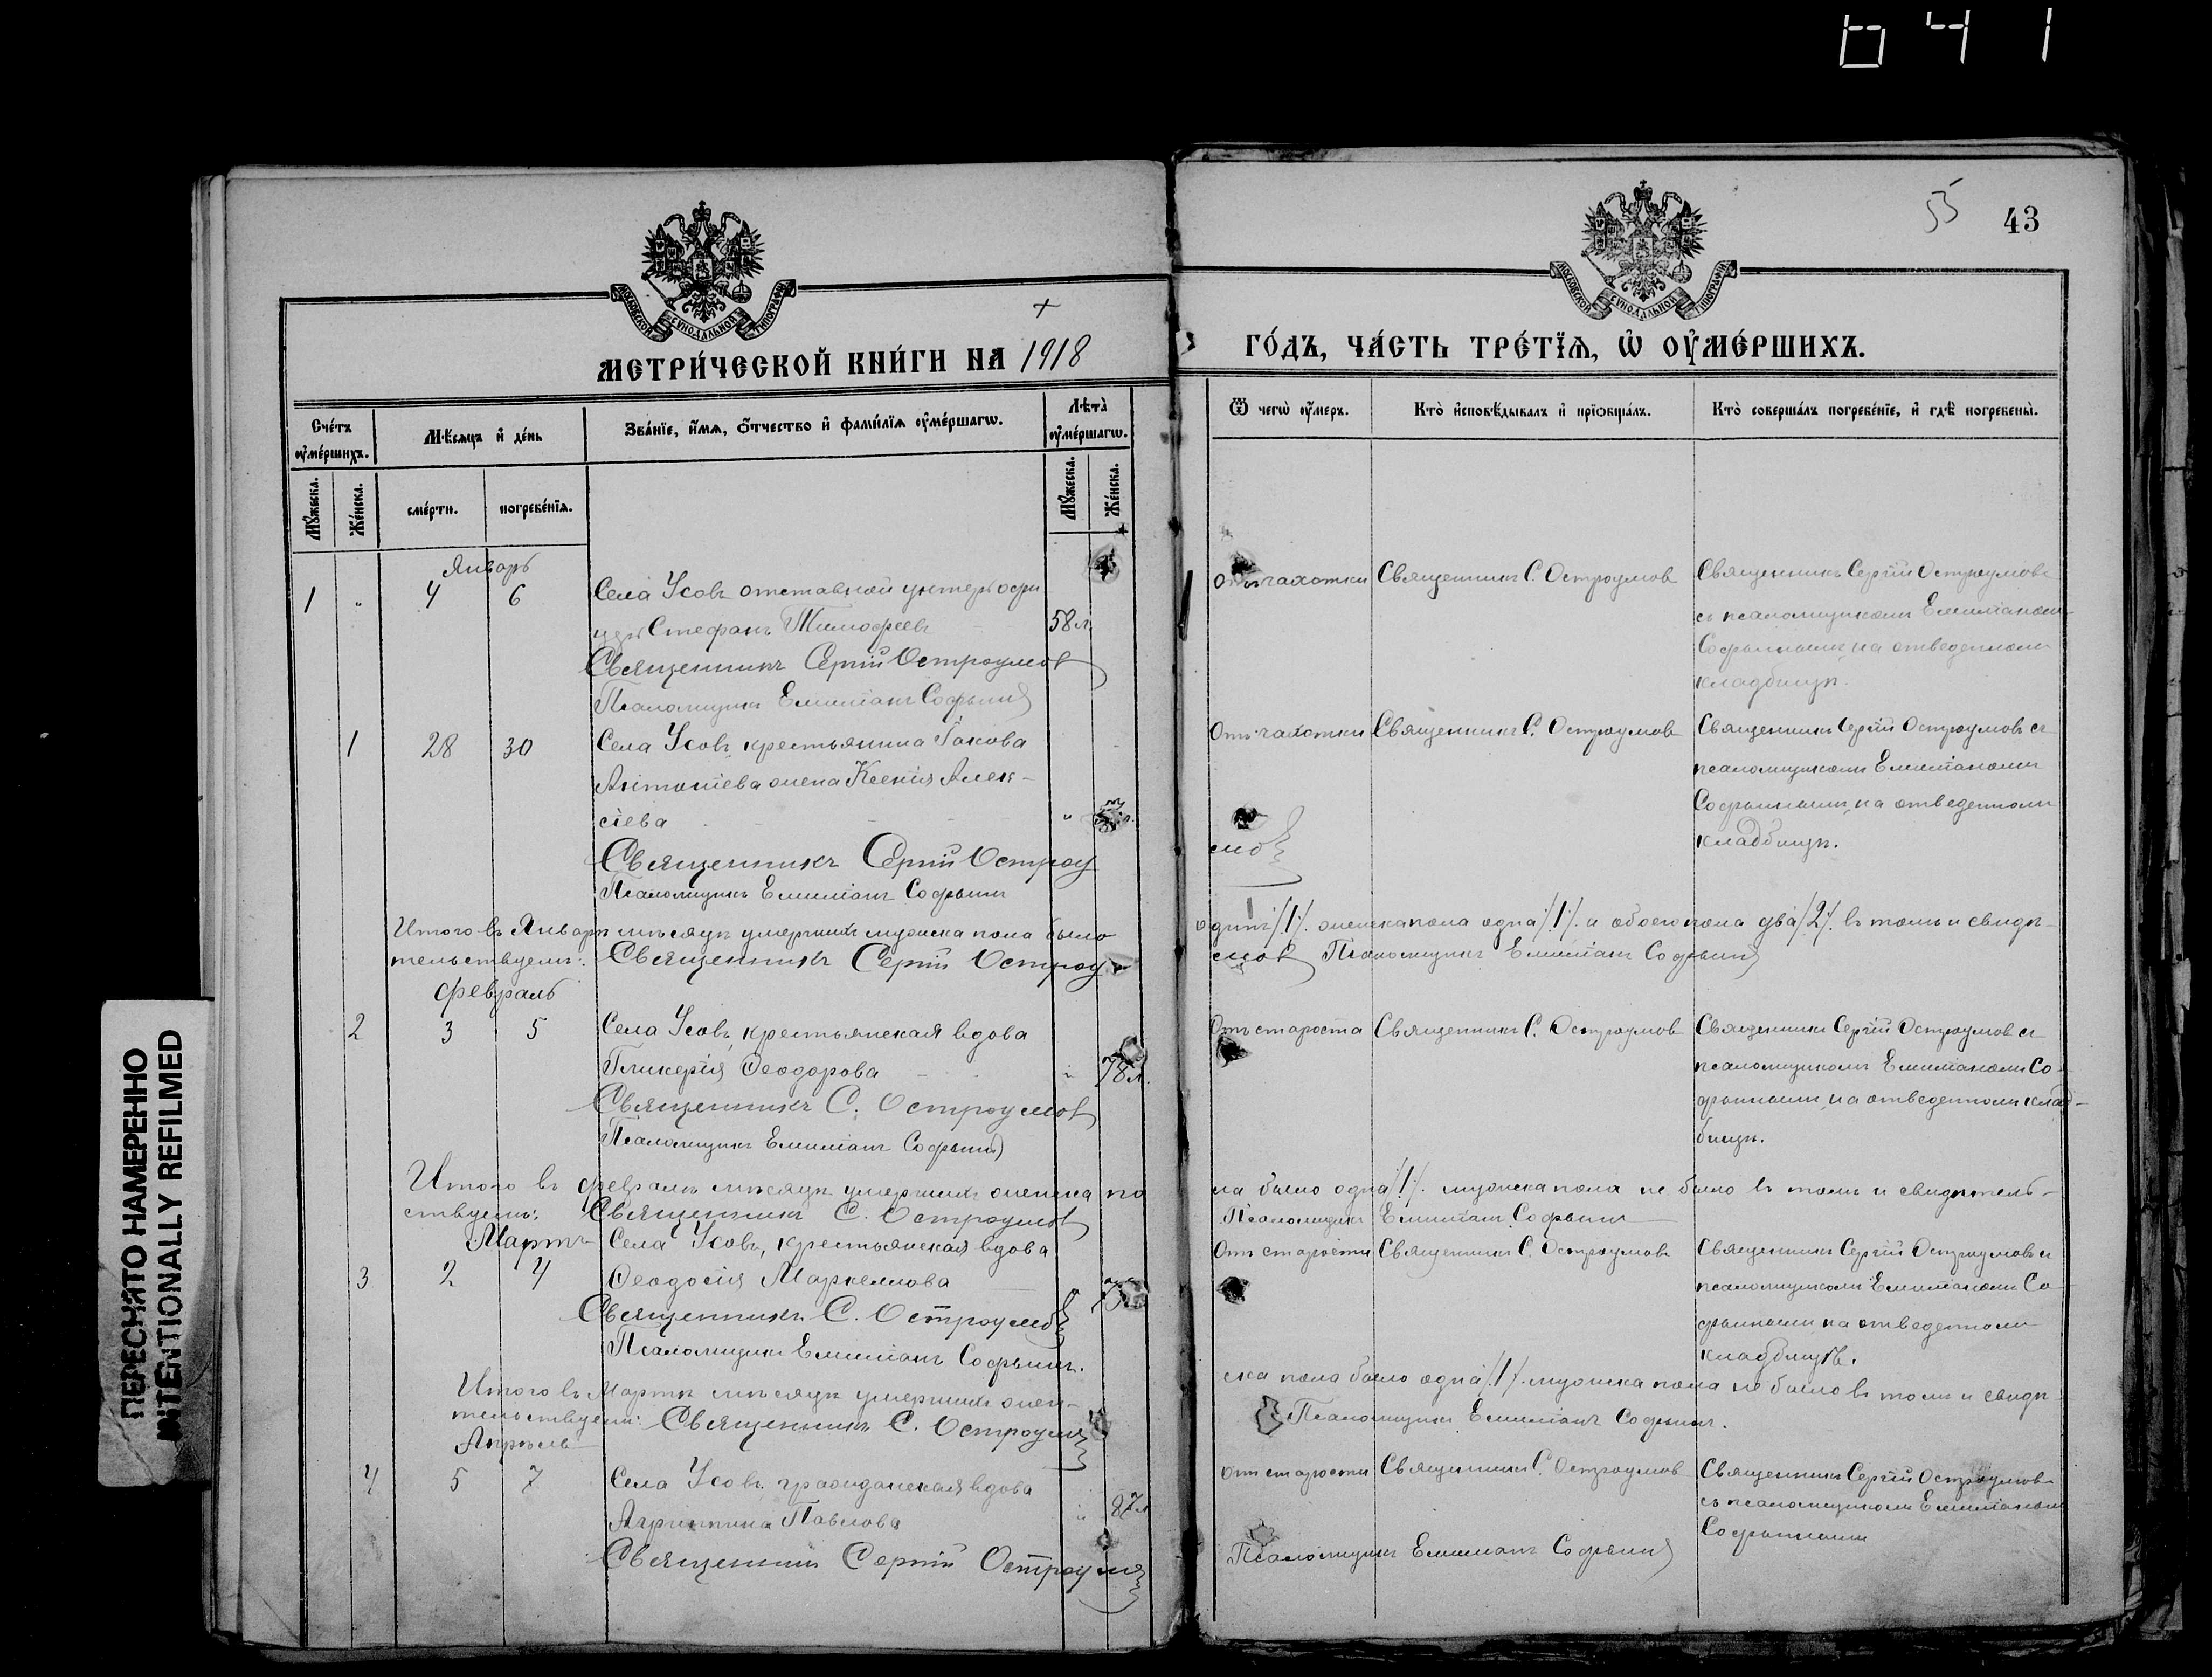 641
55
43
МОСКОВСКОЙ СУНОДАЛЬНОЙ ТИПОГРАФІИ
МОСКОВСКОЙ СУНОДАЛЬНОЙ ТИПОГРАФІИ
МЕТРИ́ЧЕСКОЙ КНИ́ГИ НА 1918
ГО́ДЪ, ЧА́СТЬ ТРЕ́ТЇѦ, Ѡ҆ ОУ҆МЕ́РШИХЪ.
Сче́тъ оу҆ме́ршихъ.
Мѣ́сяцъ и҆ де́нь
Зва́нїе, и҆́мѧ, ѻ҆́тчество и҆ фами́лїѧ оу҆ме́ршагѡ.
Лѣта̀ оу҆ме́ршагѡ.
Ѿ чегѡ̀ оу҆́меръ.
Кто̀ и҆сповѣ́дывалъ и҆ прїѡбща́лъ.
Кто̀ соверша́лъ погребе́нїе, и҆ гдѣ̀ погребены̀.
Мꙋ́жеска.
Же́нска.
сме́рти.
погребе́нїѧ.
Мꙋ́жеска.
Же́нска.
Январь
1 " 4 6 Села Усовъ отставной унтеръ офи
церъ Стефанъ Тимофеевъ 58 л.
Священникъ Сергій Остроумов
Псаломщикъ Емиліанъ Софьинъ
От чахотки Священникъ С. Остроумов
Священникъ Сергій Остроумовъ
съ псаломщикомъ Емиліаном
Софьинымъ, на отведенномъ
кладбищѣ.
1 28 30 Села Усовъ крестьянина Іакова
Антоніева жена Ксенія Алек-
сіева "
Священникъ Сергій Остроу
мов
Псаломщикъ Емиліанъ Софьинъ
Отъ чахотки Священникъ С. Остроумов
Священникъ Сергій Остроумовъ съ
псаломщикомъ Емиліаномъ
Софьинымъ, на отведенномъ
кладбищѣ.
Итого въ Январѣ мѣсяцѣ умершихъ мужеска пола было одинъ /1/. женска пола одна /1/. а обоего пола два /2/. въ томъ и свидѣ-
тельствуемъ: Священникъ Сергій Остроумов Псаломщикъ Емиліанъ Софьинъ
Февраль
2 3 5 Села Усовъ, крестьянская вдова
Гликерія Ѳеодорова " 78 л.
Священникъ С. Остроумов
Псаломщикъ Емиліанъ Софьинъ
Отъ староста Священникъ С. Остроумов
Священникъ Сергій Остроумов съ
псаломщикомъ Емиліаномъ Со-
фьинымъ, на отведенномъ клад-
бищѣ.
Итого въ Февралѣ мѣсяцѣ умершихъ женска по
ла было одна /1/. мужеска пола не было въ томъ и свидѣтель-
ствуемъ: Священникъ С. Остроумов
Псаломщикъ Емиліанъ Софьинъ
Мартъ Села Усовъ, крестьянская вдова
3 2 4 Ѳеодосія Маркеллова
Священникъ С. Остроумов
Псаломщикъ Емиліанъ Софьинъ.
Отъ старости Священникъ С. Остроумовъ
Священникъ Сергій Остроумовъ съ
псаломщикомъ Емиліаномъ Со
фьинымъ, на отведенномъ
кладбищѣ.
Итого въ Мартѣ мѣсяцѣ умершихъ жен-
ска пола было одна /1/. мужеска пола не было въ томъ и свидѣ
тельствуемъ: Священникъ С. Остроумов
Псаломщикъ Емиліанъ Софьинъ.
Апрѣль
4 5 7 Села Усовъ гражданская вдова
Агриппина Павлова " 87 л
Священникъ Сергій Остроумов
Псаломщикъ Емиліанъ Софьинъ
Отъ старости Священникъ С. Остроумов
Священникъ Сергій Остроумов
съ псаломщикомъ Емиліаномъ
Софьинымъ
ПЕРЕСНЯТО НАМЕРЕННО
INTENTIONALLY REFILMED